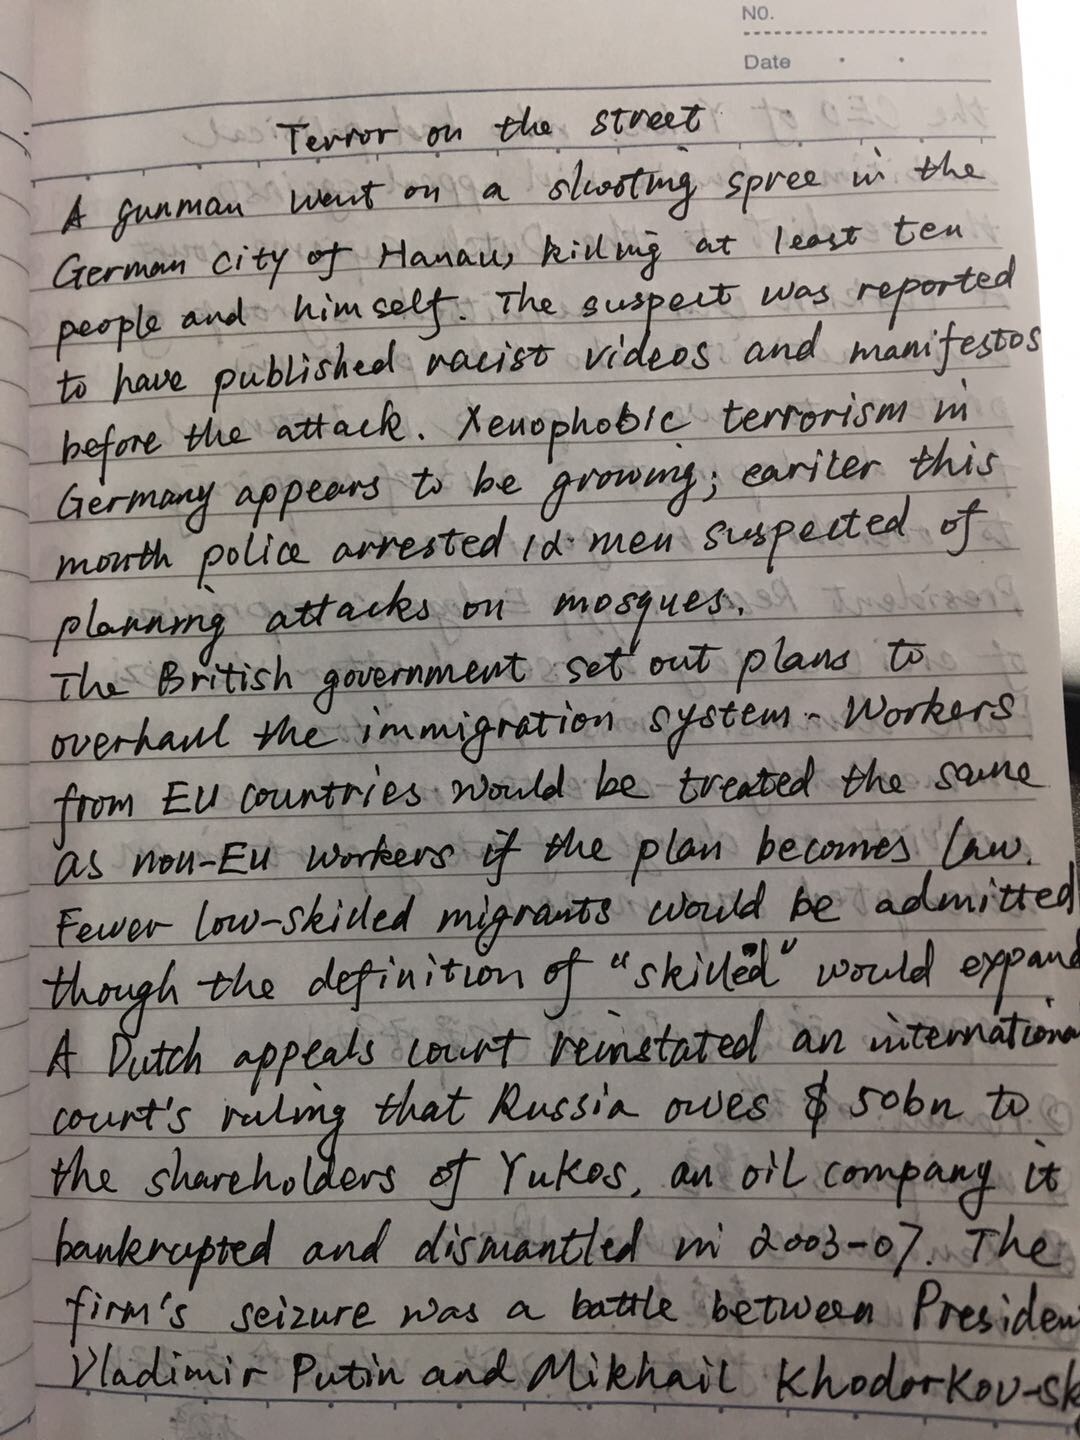 NO.
Date
Terror on the street
A gunman went on a shooting spree in the
German city of Hanau, killing at least ten
people and himself. The suspect was reported
to have published racist videos and manifestos
before the attack. Xenophobic terrorism in
Germany appears to be growing; eariler this
month police arrested 12 men suspected of
planning attacks on mosques.
The British government set out plans to
overhaul the immigration system. Workers
from EU countries would be treated the same
as non-EU workers if the plan becomes law.
Fewer low-skilled migrants would be admitted
though the definition of "skilled" would expand
A Dutch appeals court reinstated an internationa
court's ruling that Russia owes $50bn to
the shareholders of Yukos, an oil company it
bankrupted and dismantled in 2003-07. The
firm's seizure was a battle between Presiden
Vladimir Putin and Mikhail Khodorkov-sk